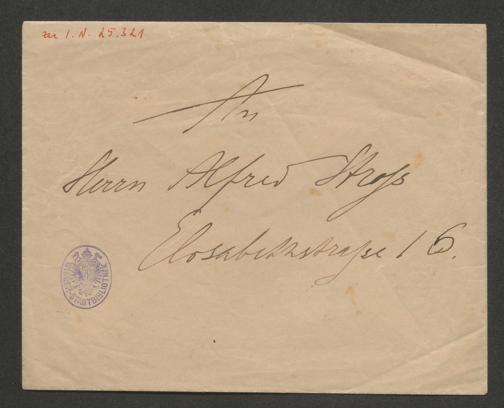 zu I. N. 25.321
An
Herrn Alfred Stross
Elisabethstrasse 16.